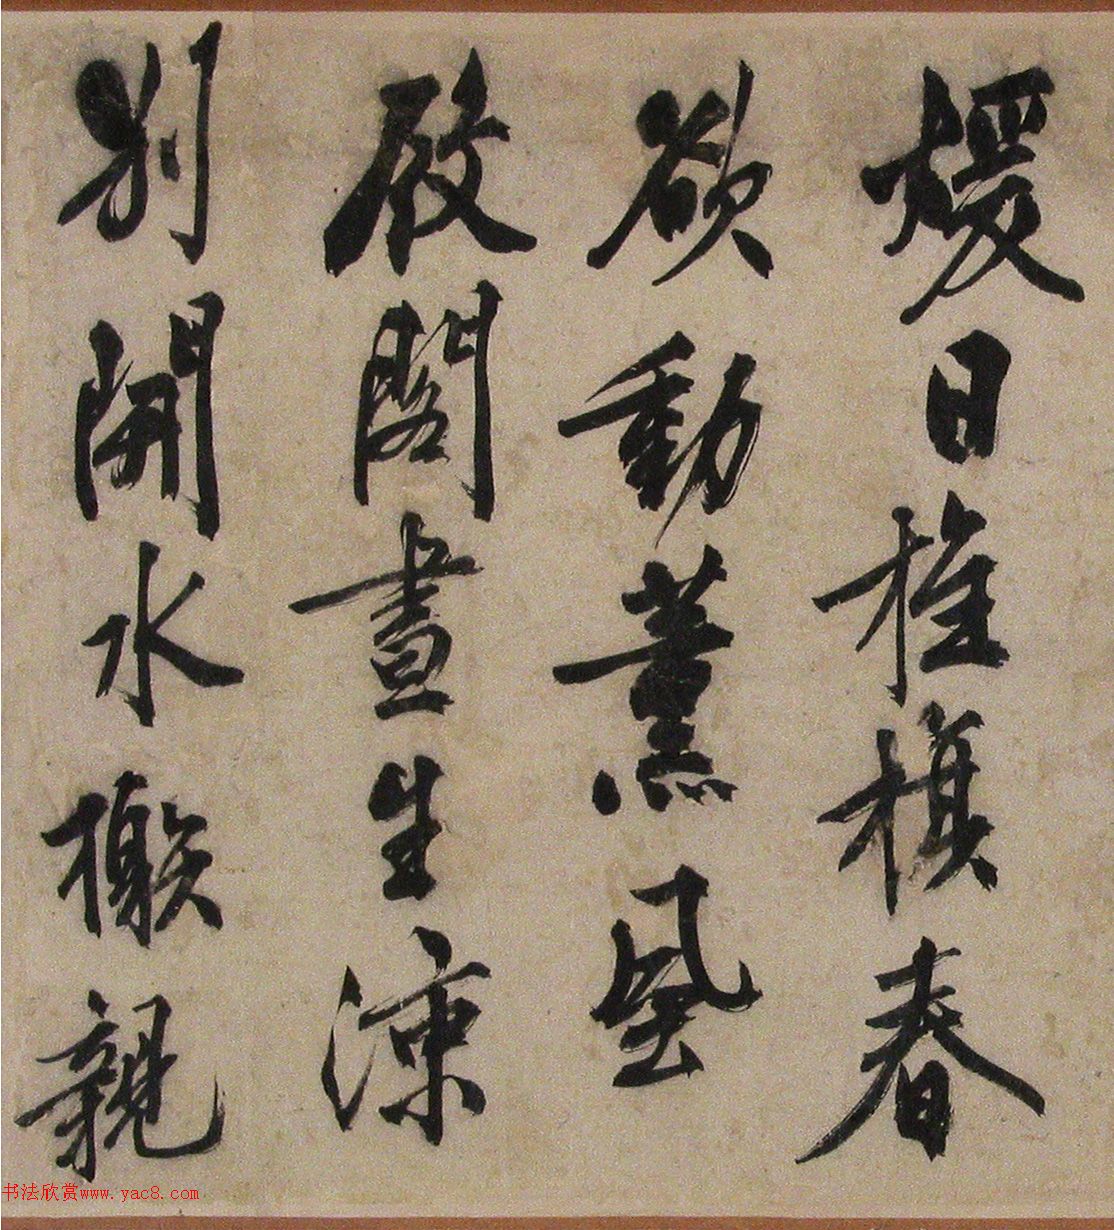 煖日旌旗春
欲動薰風
殿閣晝生涼
別開水榭親
书法欣赏www.yac8.com